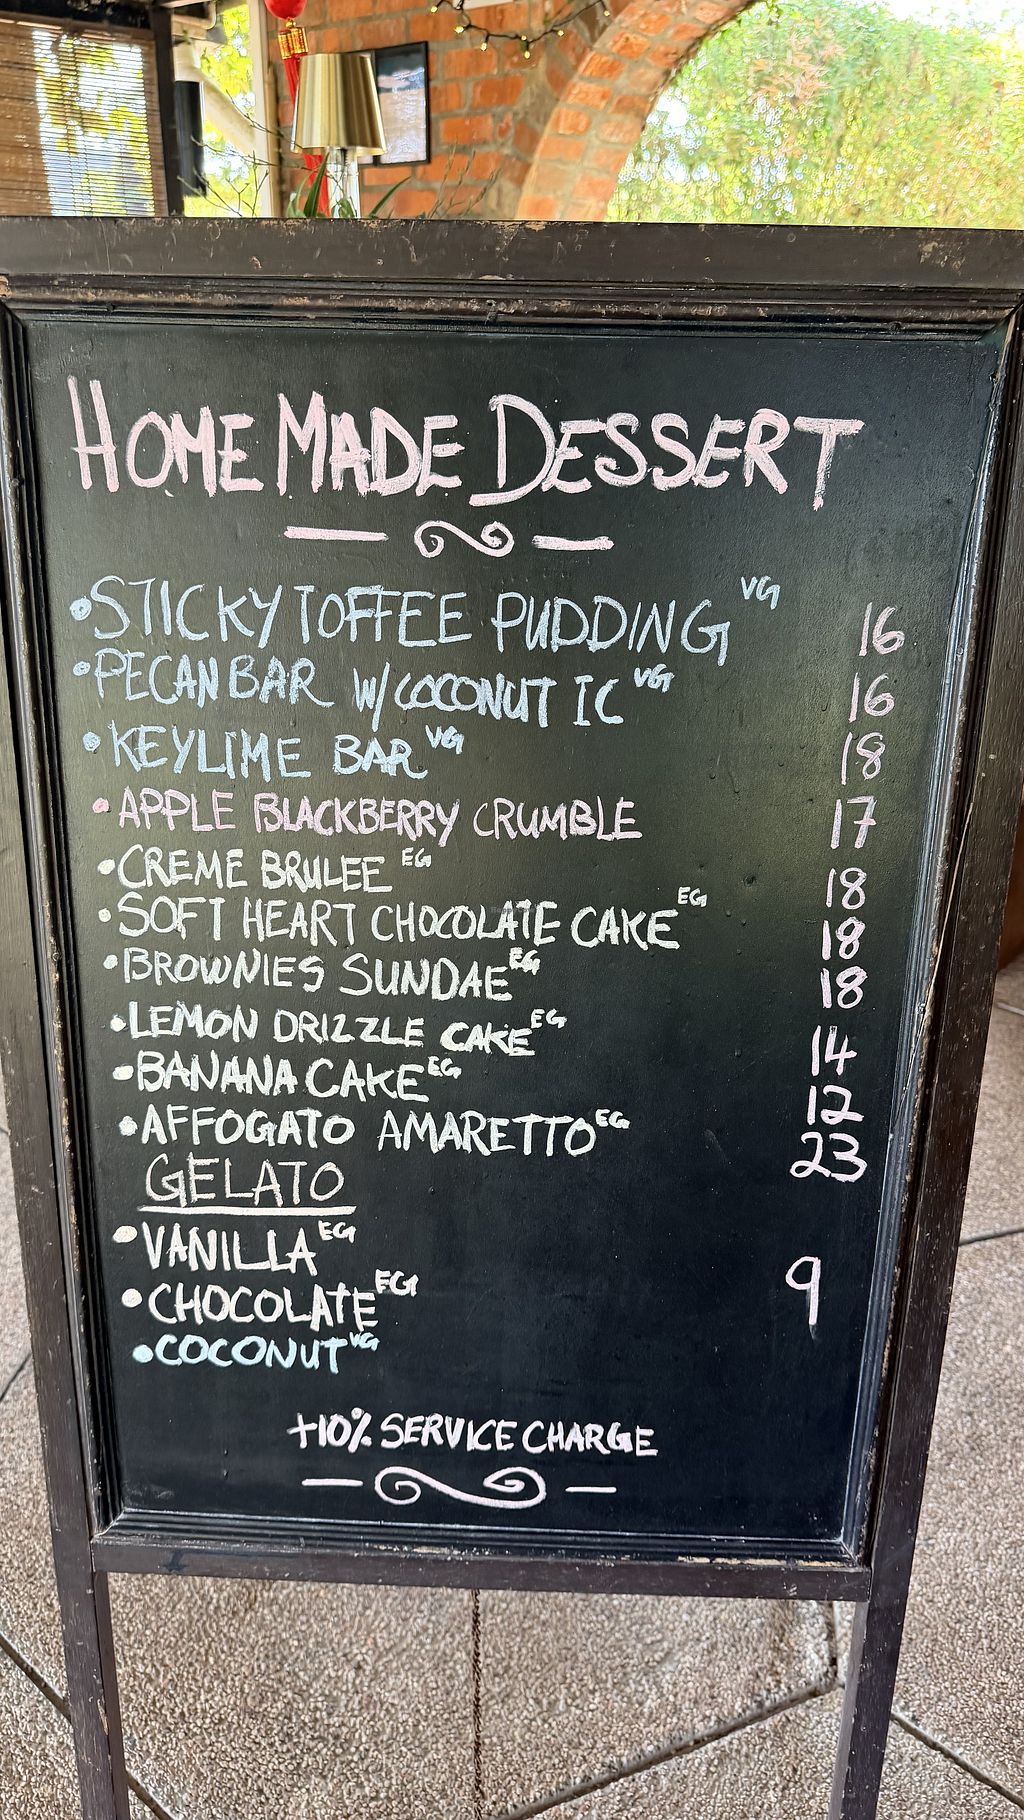 HOMEMADE DESSERT
•STICKY TOFFEE PUDDING VG 16
•PECAN BAR W/COCONUT IC VG 16
•KEYLIME BAR VG 18
•APPLE BLACKBERRY CRUMBLE 17
•CREME BRULEE EG 18
•SOFT HEART CHOCOLATE CAKE EG 18
•BROWNIES SUNDAE EG 18
•LEMON DRIZZLE CAKE EG 14
•BANANA CAKE EG 12
•AFFOGATO AMARETTO EG 23
GELATO
•VANILLA EG
•CHOCOLATE EG 9
•COCONUT VG
+10% SERVICE CHARGE